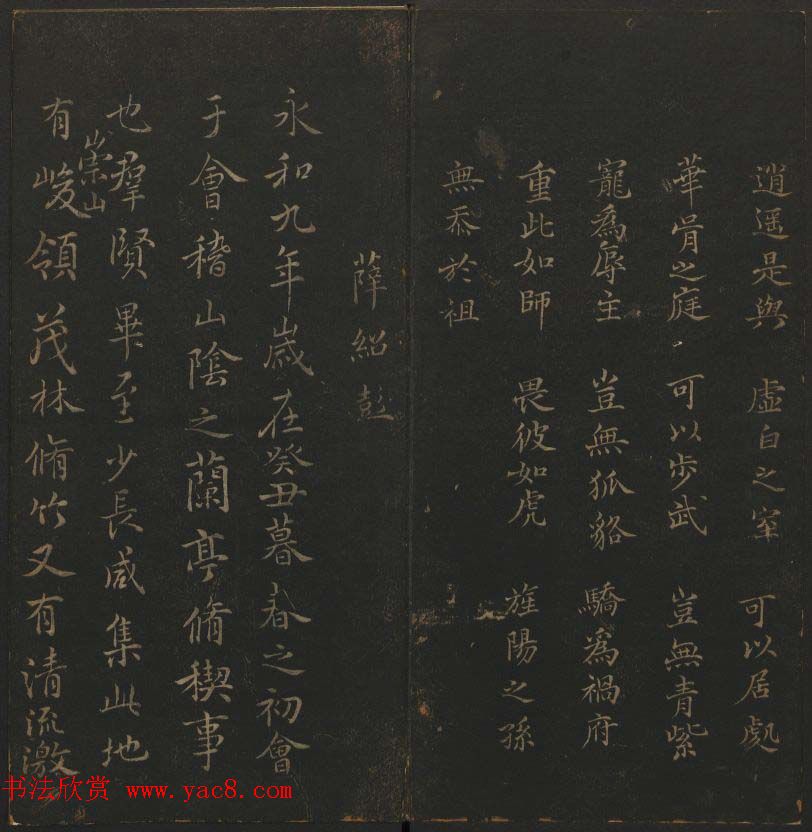 逍遥是與 虛白之室 可以居處
華胥之庭 可以步武 豈無青紫
寵爲辱主 豈無狐貉 驕爲禍府
重此如師 畏彼如虎 旌陽之孫
無忝於祖
薛紹彭
永和九年歲在癸丑暮春之初會
于會稽山陰之蘭亭脩稧事
也羣賢畢至少長咸集此地
有崇山峻領茂林脩竹又有清流激
书法欣赏 www.yac8.com